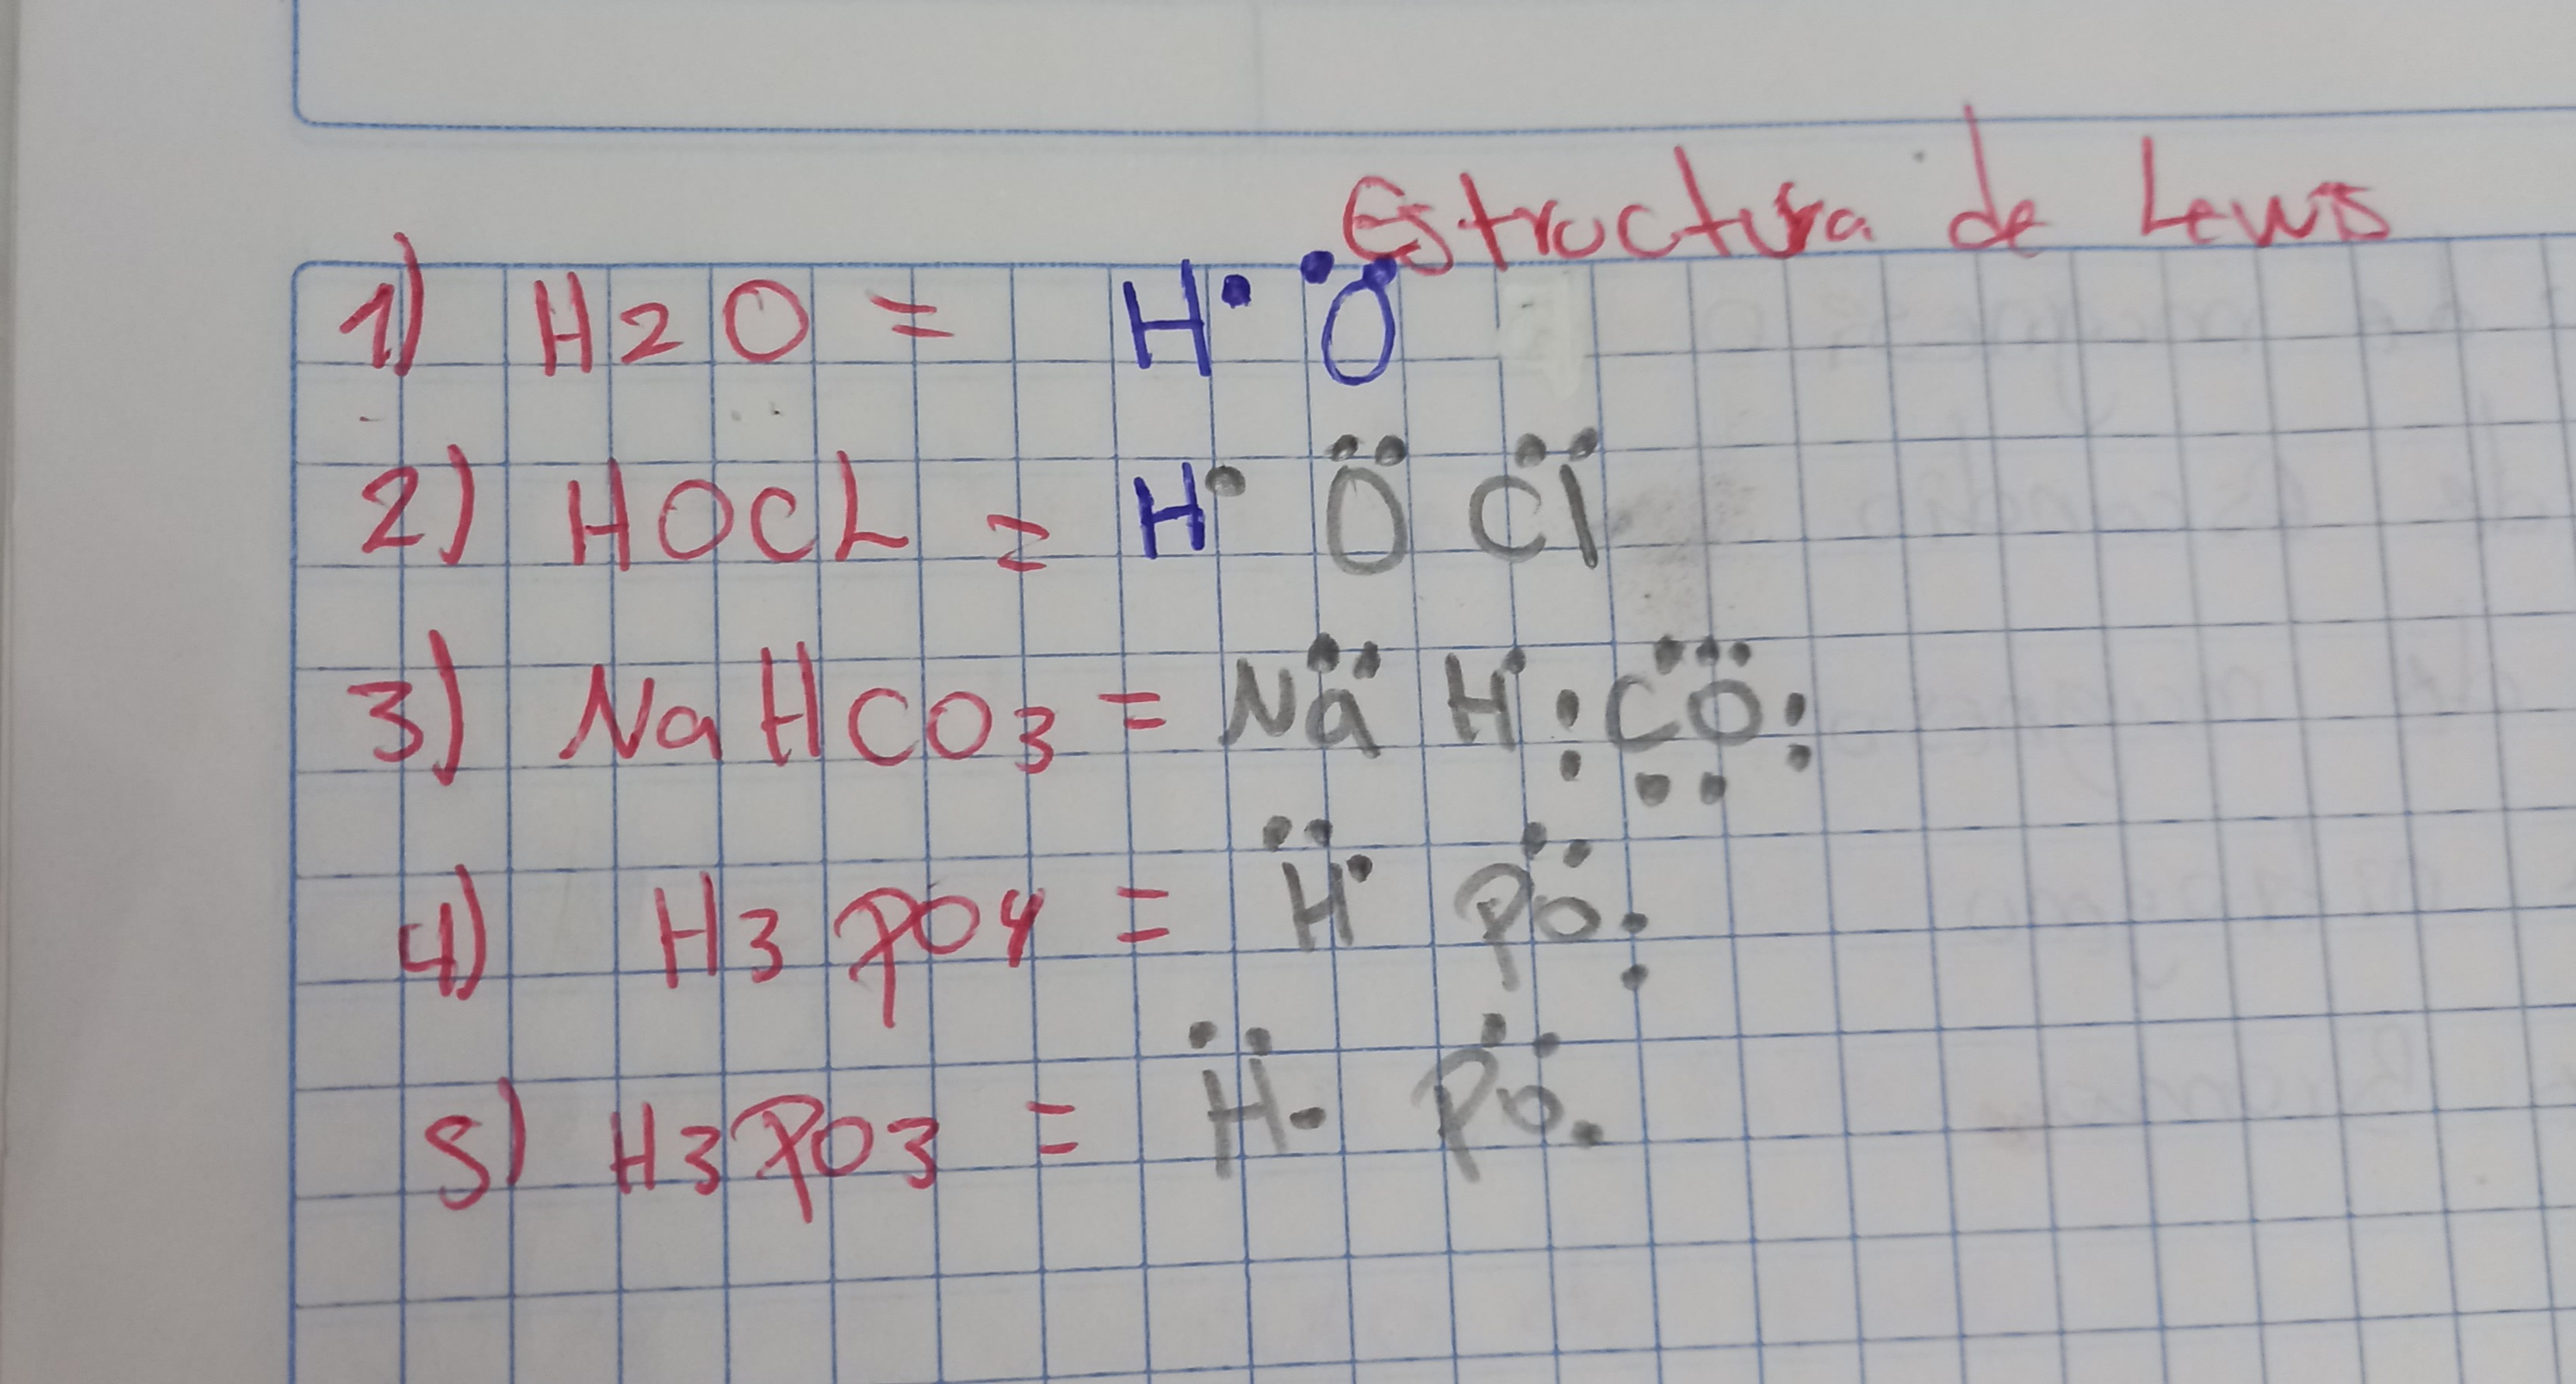 Estructura de Lewis
1) H2O = H· Ö
2) HOCL = H· Ö C̈l
3) NaHCO3 = Nä H· :CO:
4) H3PO4 = Ḧ· PÖ:
5) H3PO3 = Ḧ. PÖ.